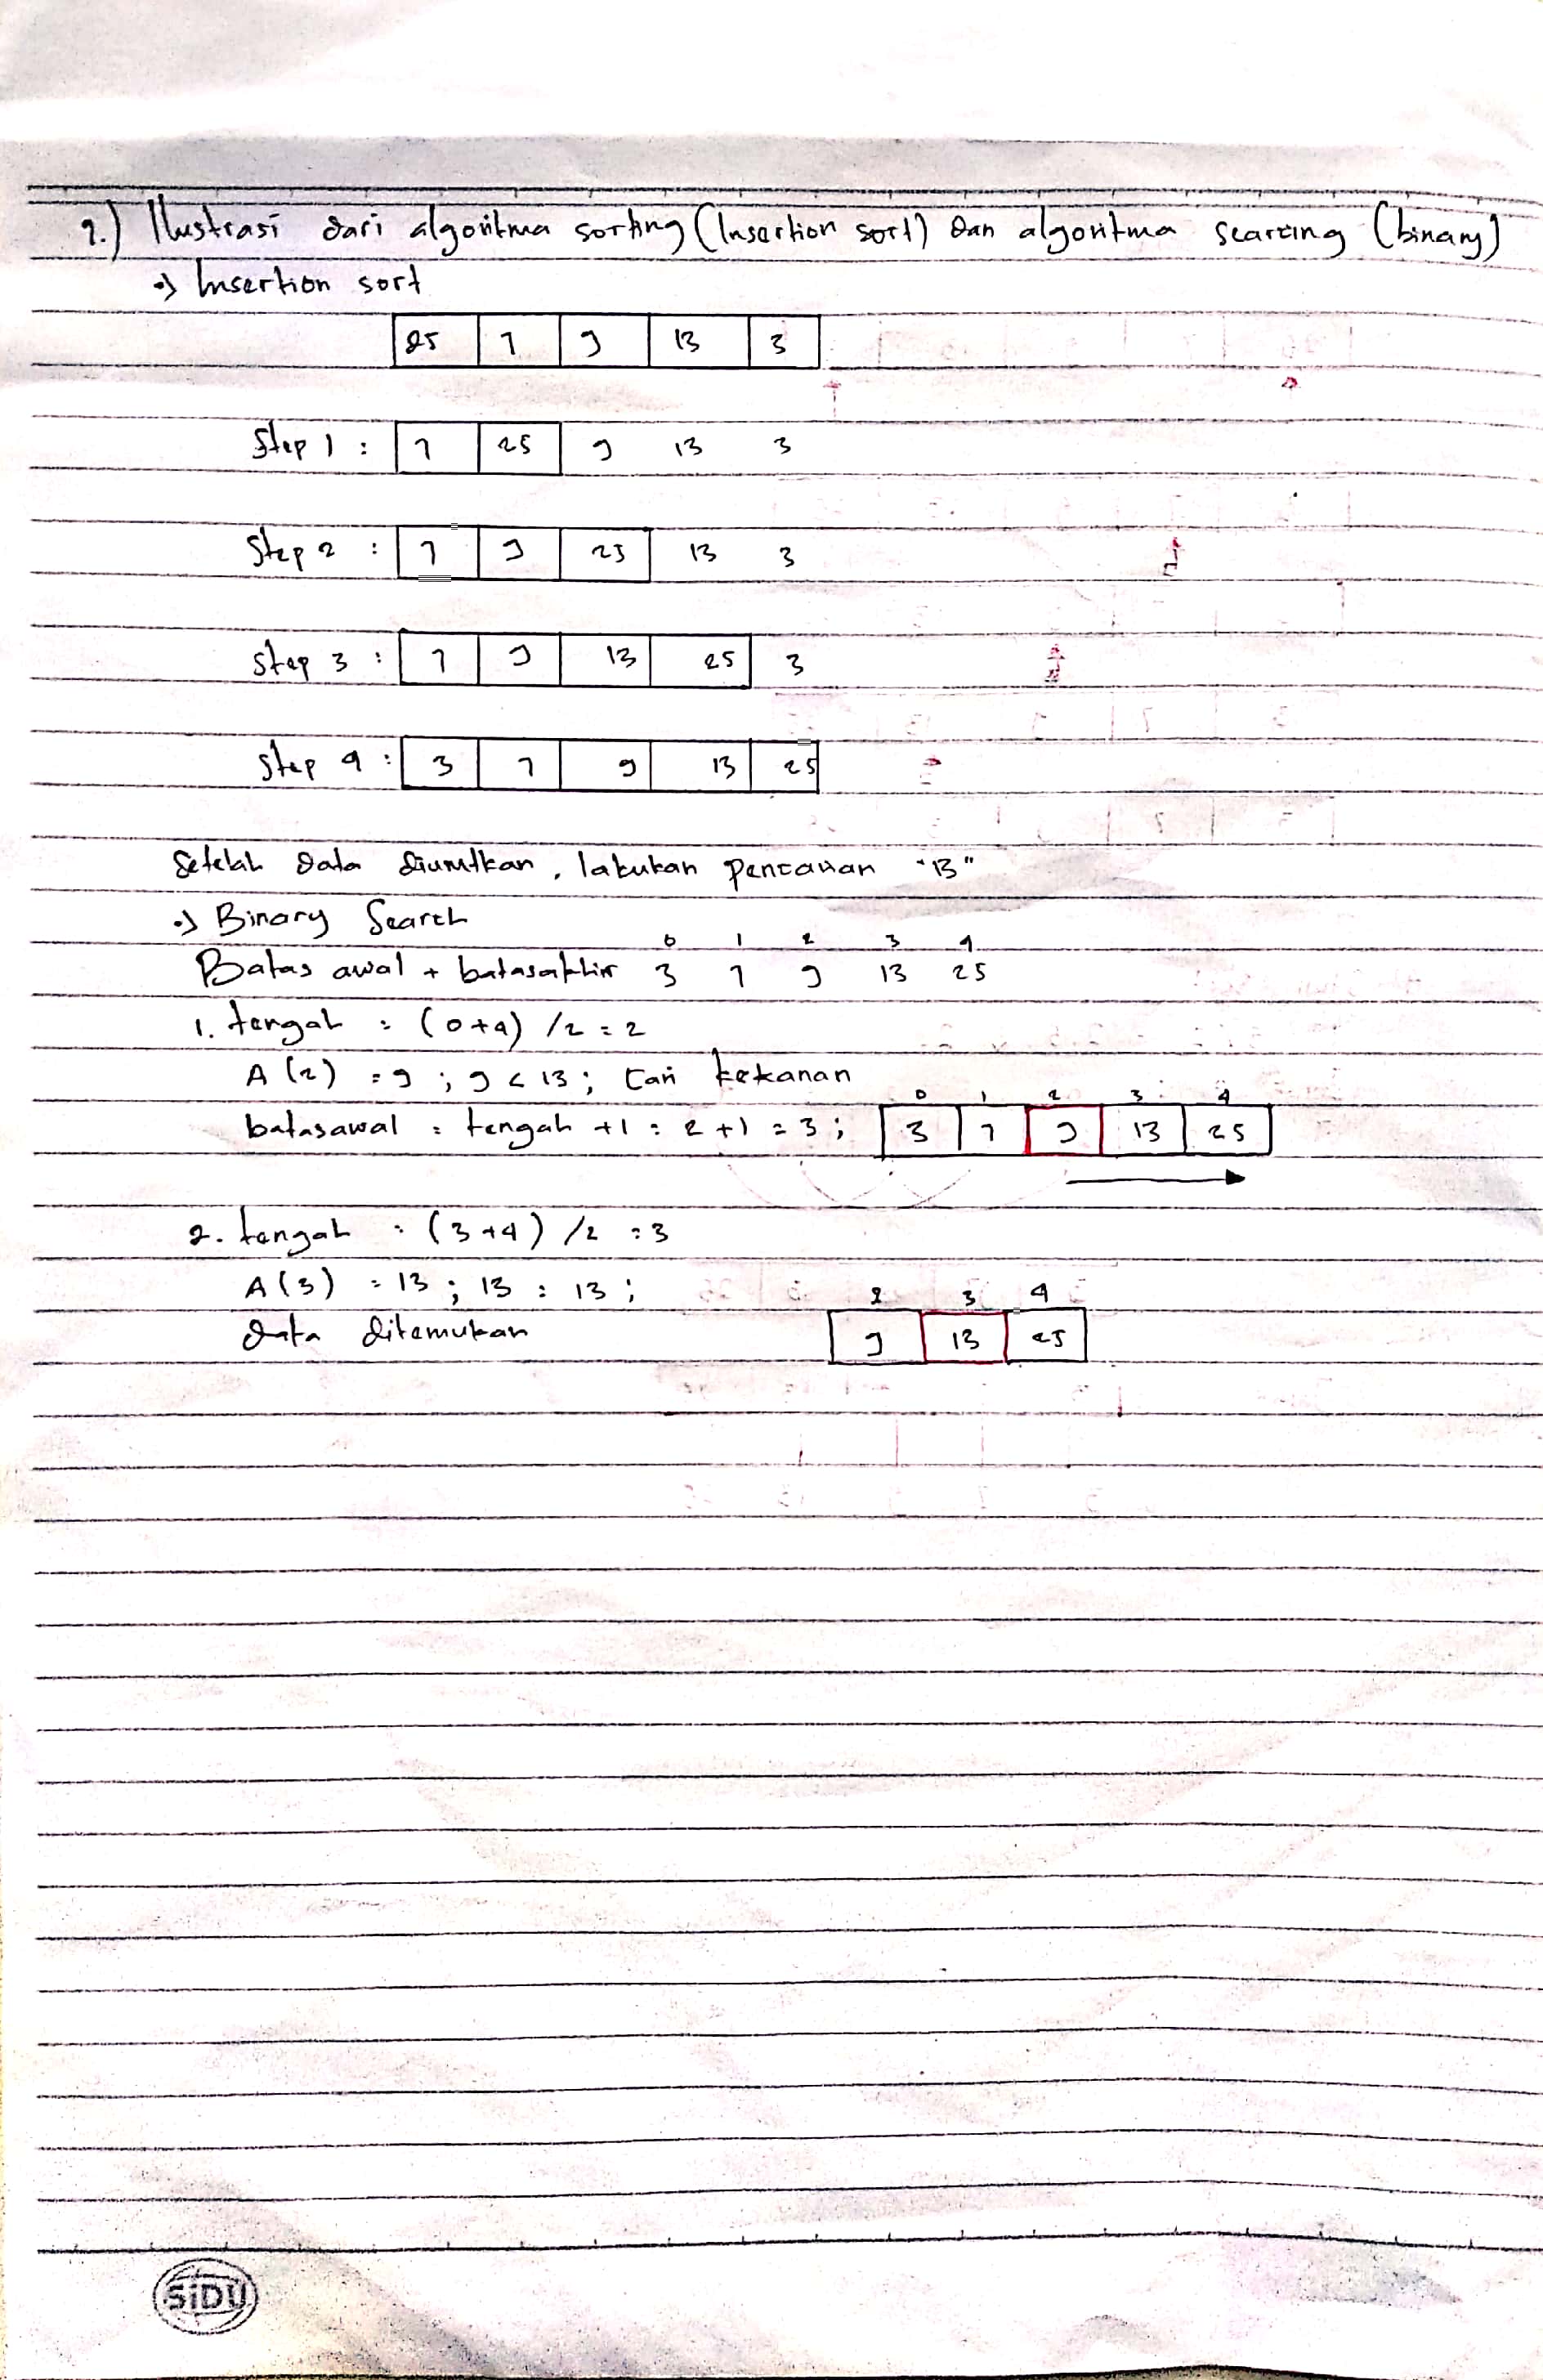 2.) Ilustrasi dari algoritma sorting (Insertion sort) dan algoritma searcing (binary)
•) Insertion sort
25 7 9 13 3
Step 1 : 7 25 9 13 3
Step 2 : 7 9 25 13 3
Step 3 : 7 9 13 25 3
Step 4 : 3 7 9 13 25
Setelah data diurutkan, lakukan pencarian "13"
•) Binary Search
0 1 2 3 4
Batas awal + batasakhir 3 7 9 13 25
1. tengah = (0+4) /2 = 2
A (2) = 9 ; 9 < 13 ; cari kekanan
0 1 2 3 4
batasawal = tengah +1 = 2 +1 = 3 ; 3 7 9 13 25
2. tengah = (3+4) /2 = 3
A(3) = 13 ; 13 = 13 ;
2 3 4
data ditemukan 9 13 25
SiDU